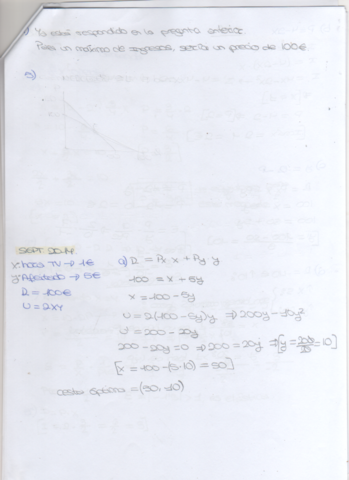 Ya está respondido en la pregunta anterior.
Para un máximo de ingresos, sería un precio de 100€
SEPT. 2014.
x: horas TV → 1€
y: → 5€
R = 100€
U = 2XY
a) R = Px · x + Py · y
100 = x + 5y
x = 100 - 5y
U = 2(100 - 5y)y ⇒ 200y - 10y²
U' = 200 - 20y
200 - 20y = 0 ⇒ 200 = 20y ⇒ [y = 200/20 = 10]
[x = 100 - (5·10) = 50]
cesta óptima = (50, 10)